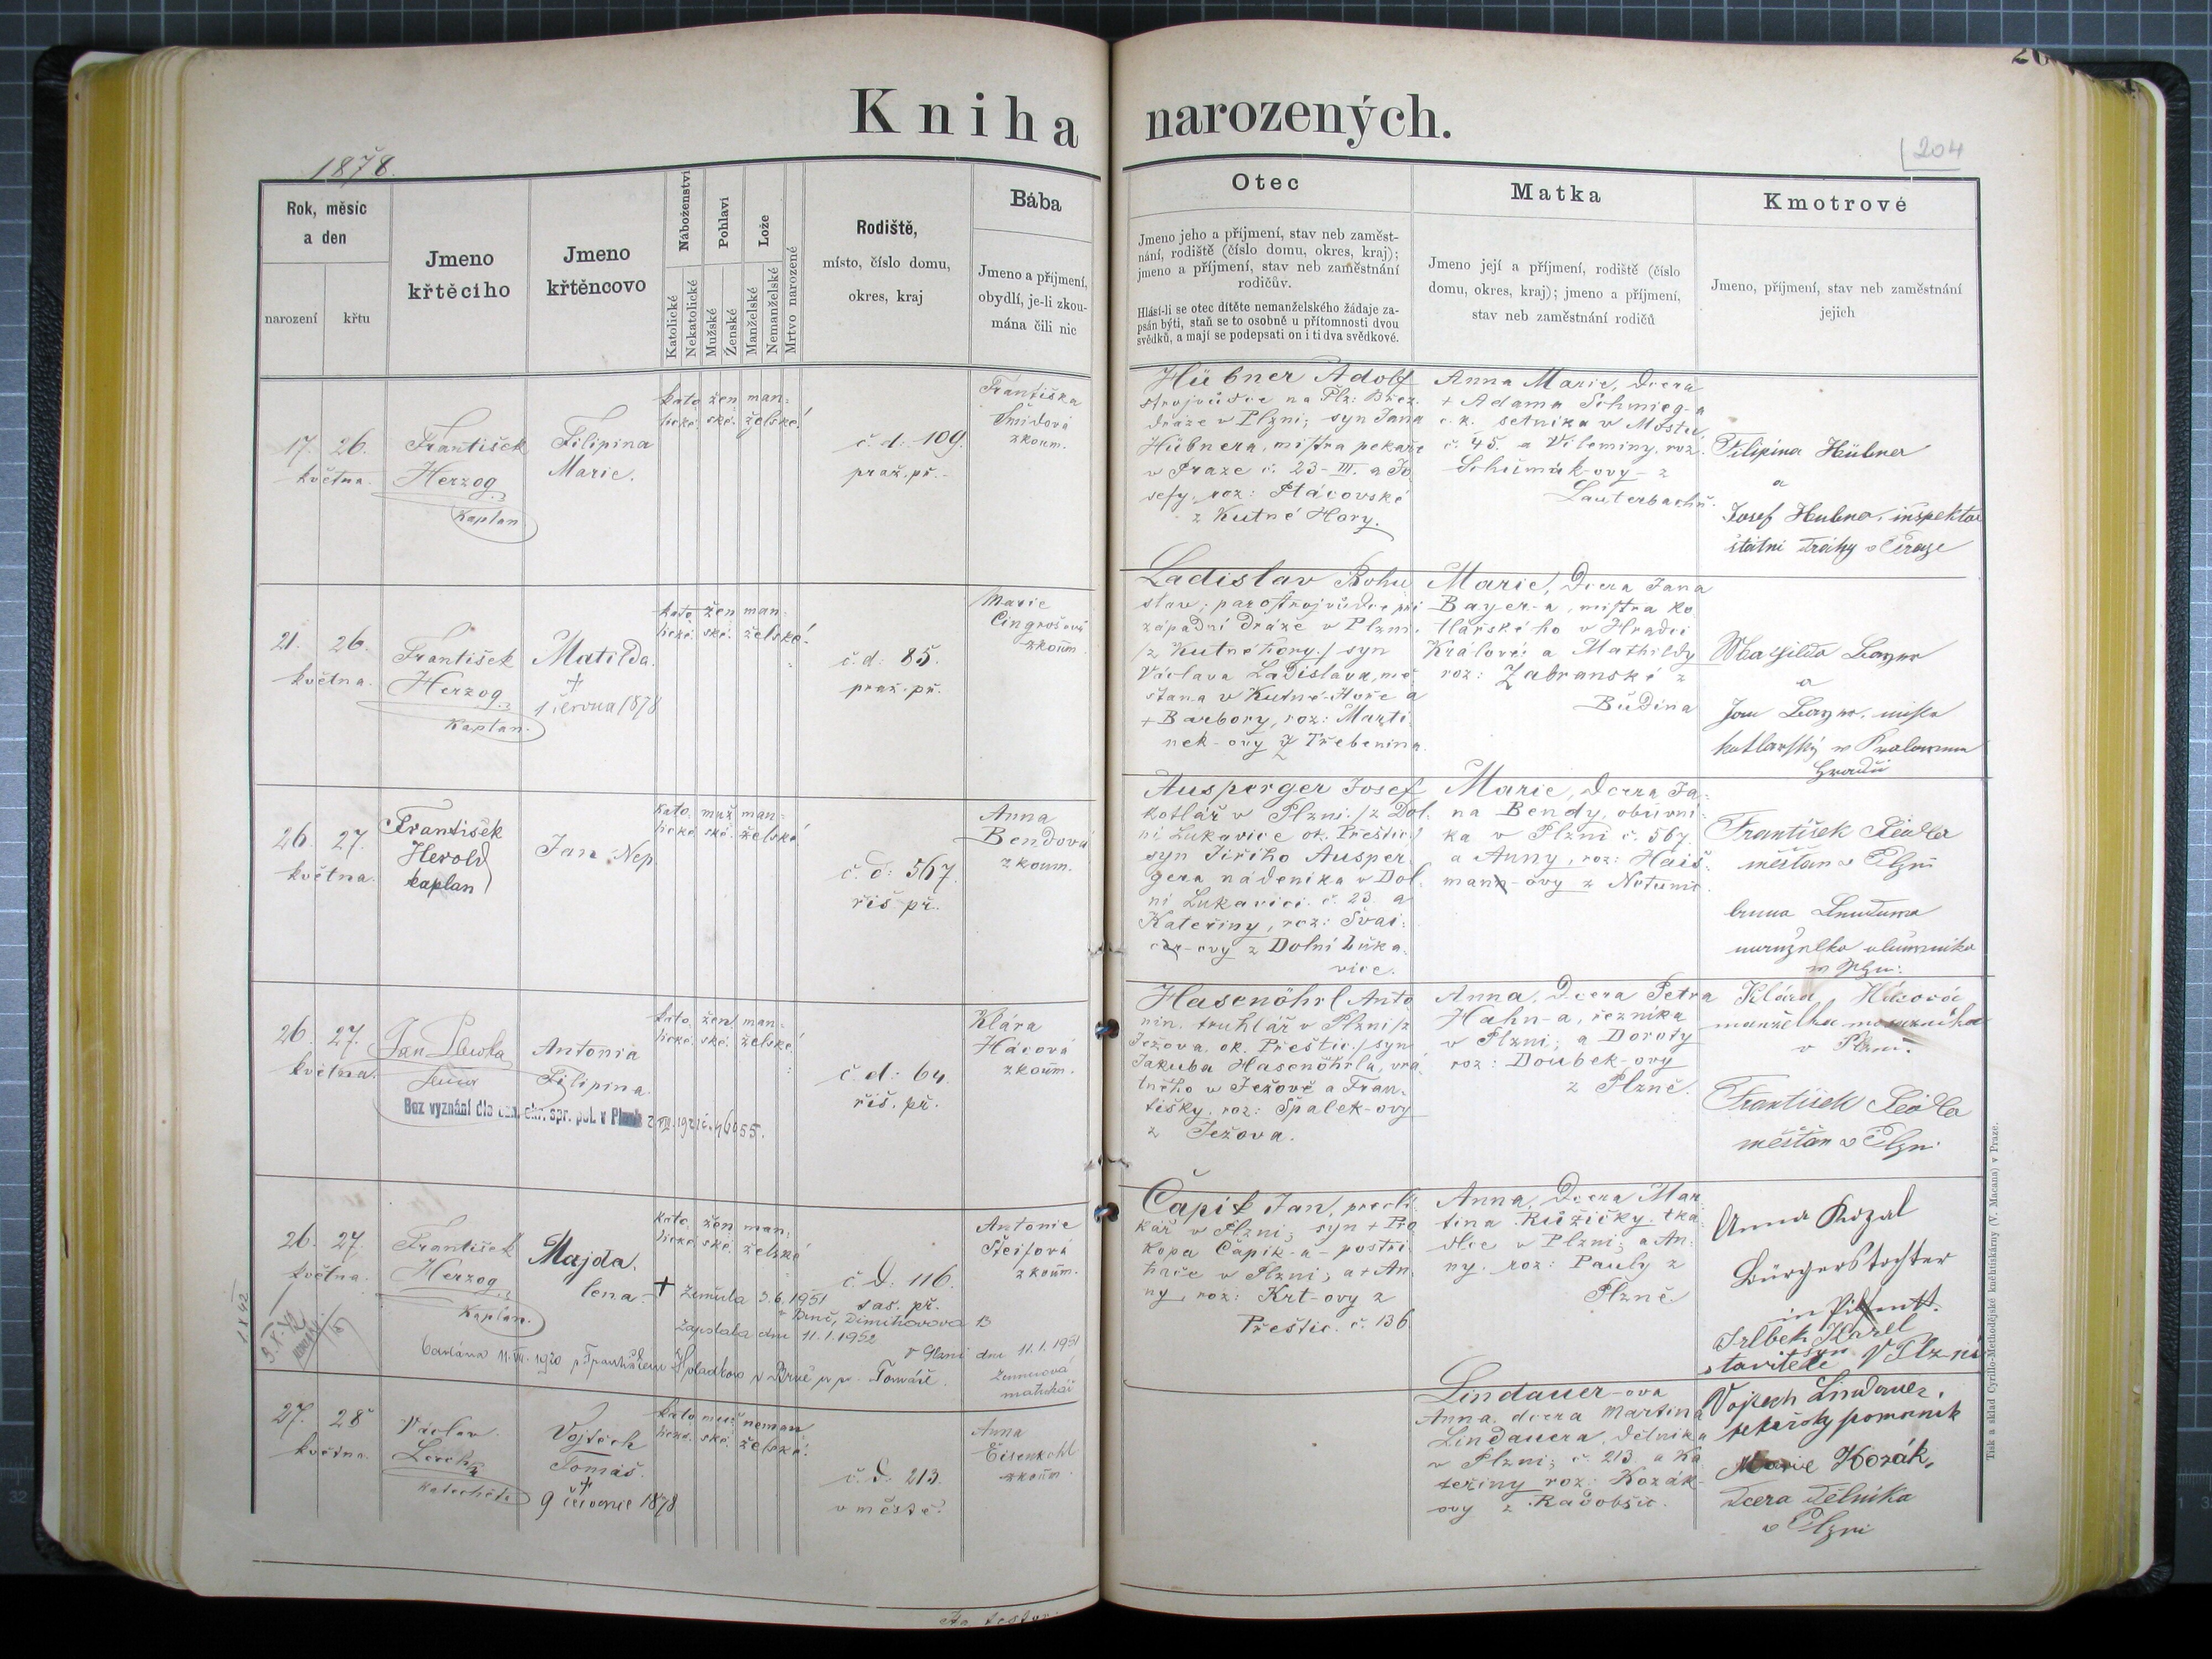 Kniha narozených.
1878.
204
Rok, měsíc
a den
narození
křtu
Jmeno
křtěcího
Jmeno
křtěncovo
Náboženství
Katolické
Nekatolické
Pohlaví
Mužské
Ženské
Lože
Manželské
Nemanželské
Mrtvo narozené
Rodiště,
místo, číslo domu,
okres, kraj
Bába
Jmeno a příjmení,
obydlí, je-li zkou-
mána čili nic
Otec
Jmeno jeho a příjmení, stav neb zaměst-
nání, rodiště (číslo domu, okres, kraj);
jmeno a příjmení, stav neb zaměstnání
rodičův.
Hlásí-li se otec dítěte nemanželského žádaje za-
psán býti, staň se to osobně u přítomnosti dvou
svědků, a mají se podepsati on i ti dva svědkové.
Matka
Jmeno její a příjmení, rodiště (číslo
domu, okres, kraj); jmeno a příjmení,
stav neb zaměstnání rodičů
Kmotrové
Jmeno, příjmení, stav neb zaměstnání
jejich
17. 26.
května.
František
Herzog
Kaplan
Filipina
Marie.
kato žen man:
lické. ské. želské.
č. d. 109.
praž. př.
Františka
Šmídová
zkoum.
Hübner Adolf
strojvůdce na Plz: Břez.
dráze v Plzni; syn Jana
Hübnera, mistra pekaře
v Praze č. 23-III. a Jo
sefy, roz: Ptáčovské
z Kutné Hory.
Anna Marie, dcera
+ Adama Schmieg-a
c. k. setníka v Mostu
č. 45. a Vileminy, roz.
Schümák-ovy - z
Lauterbachu.
Filipina Hübner
a
Josef Hübner, inspektor
státní dráhy v Praze
21. 26.
května.
František
Herzog
Kaplan.
Matilda.
+
1 června 1878
kato žen man:
lické. ské. želské.
č. d: 85.
praž. př.
Marie
Cingrošová
zkoum.
Ladislav Bohu
slav; parostrojvůdce při
západní dráze v Plzni.
/z Kutné Hory./ syn
Václava Ladislava, mě
šťana v Kutné-Hoře a
+ Barbory, roz: Marti
nek-ovy z Třebonína.
Marie, dcera Jana
Bayer-a, mistra ko
tlářského v Hradci
Králové a Mathildy
roz: Zabranské z
Budína
a
26. 27.
května.
František
Herold
kaplan
Jan Nep.
kato muž man:
lické ské. želské.
č. d: 567.
říš př.
Anna
Bendová
zkoum.
Ausperger Josef
kotlář v Plzni. /z Dol.
ní Lukavice ok. Přeštic./
syn Jiřího Ausper
gera nádeníka v Dol.
ní Lukavici. č. 23. a
Kateřiny, roz: Švai:
cer-ovy z Dolní Luka.
vice.
Marie, dcera Ja:
na Bendy, obuvní
ka v Plzni č. 567
a Anny, roz: Haiš
mann-ovy z
František
měšťan v Plzni
26. 27.
května.
Jan
Antonia
Filipina.
Bez vyznání dle ozn. okr. spr. pol. v Plzni
kato. žen man:
lické. ské. želské.
č. d: 64.
říš. př.
Klára
Hácová
zkoum.
Hasenöhrl Anto
nín. truhlář v Plzni /z
Ježova. ok. Přeštic./ syn
Jakuba Hasenöhrla, vrá
tného v Ježově a Fran.
tišky. roz: Špalek-ovy
z Ježova.
Anna, dcera Petra
Hahn-a, řezníka
v Plzni; a Doroty
roz: Doubek-ovy
z Plzně.
Klára Hácová
manželka
v Plzni.
František
měšťan v Plzni
26. 27.
května.
František
Herzog
Kaplan.
Majda.
lena.
kato. žen man:
lické. ské. želské
+ Zemřela 3. 6. 1951
v Brně, Dimitrovova 13
Zapsala dne 11. 1. 1952
č. d: 116.
sas. př.
Antonie
Šteifová
zkoum.
Čapik Jan,
kař v Plzni; syn + Pro
kopa Čapik-a - postři
hače v Plzni; a + An
ny, roz: Krt-ovy z
Přeštic. č. 136
Anna, dcera Mar
tina Růžičky. tka
dlce v Plzni; a An:
ny. roz: Pauly z
Plzně
Anna
Bürgerstochter
in Pilsen
Karel
syn
stavitele v Plzni
27. 28
května.
Václav
Lerch
katecheta
Vojtěch
Tomáš.
+
9 července 1878
kato muž neman
lické. ské. želské.
č. d: 213.
v městě.
Anna
Eisenkohl
zkoum.
Lindauer-ova
Anna. dcera Martina
Lindauera, dělníka
v Plzni; č. 213. a Ka
teřiny roz: Kozák-
ovy z Radobšic.
Vojtěch Lindauer.
pekařský pomocník
Marie Kozák,
dcera dělníka
v Plzni
Tisk a sklad Cyrillo-Methodějské knihtiskárny (V. Macana) v Praze.